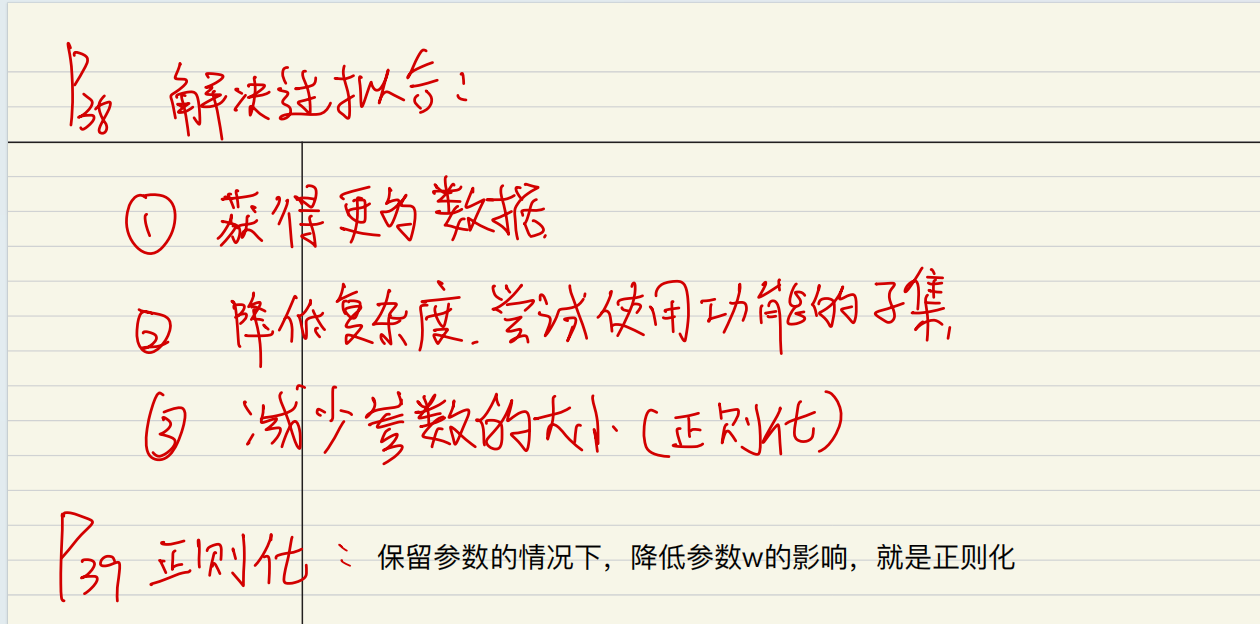 P38 解决过拟合：
① 获得更多数据.
② 降低复杂度. 尝试使用功能的子集,
③ 减少参数的大小（正则化）
P39 正则化： 保留参数的情况下，降低参数w的影响，就是正则化